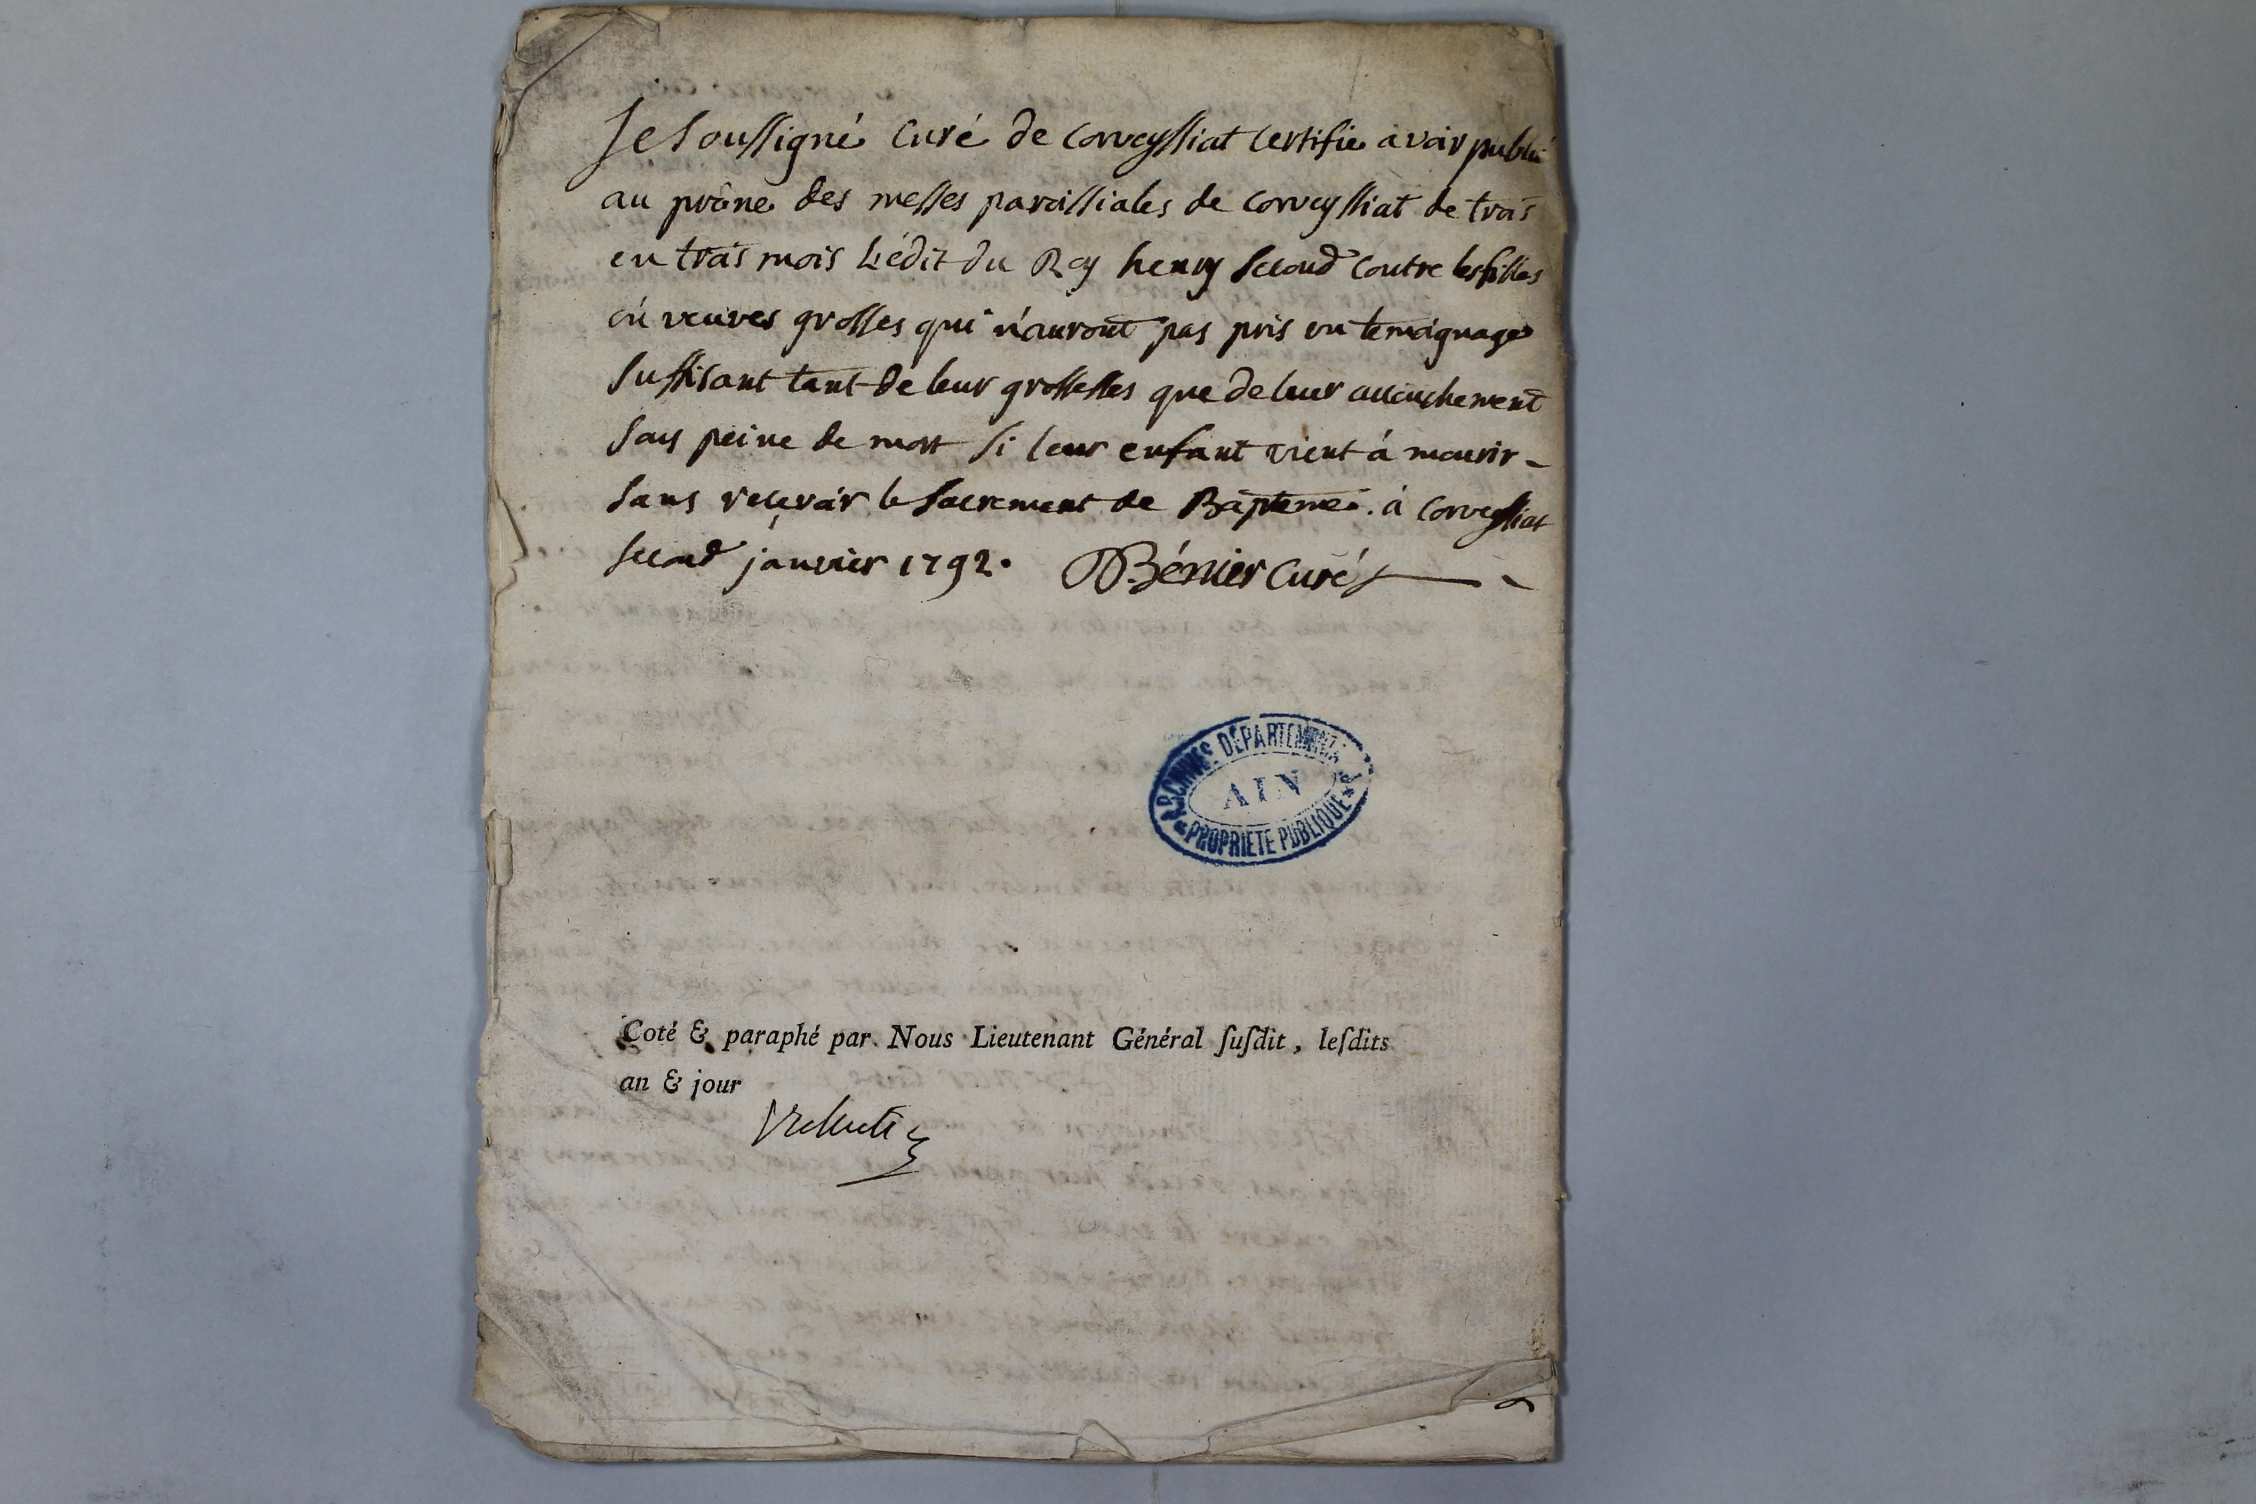 Je soussigné Curé de Corveyssiat Certifie avoir publié
au prône des messes paroissiales de Corveyssiat de trois
en trois mois L'édit du Roy henry Second contre les filles
ou veuves grosses qui n'auront pas pris un temoignage
suffisant tant de leur grossesses que de leur accouchement
sous peine de mort si leur enfant vient á mourir -
sans recevoir le Sacrement de Bapteme. à Corveyssiat
second janvier 1792. Bénier Curé
ARCHIVES DÉPARTEMENTALES
AIN
PROPRIÉTÉ PUBLIQUE
Coté & paraphé par Nous Lieutenant Général ſuſdit, leſdits
an & jour